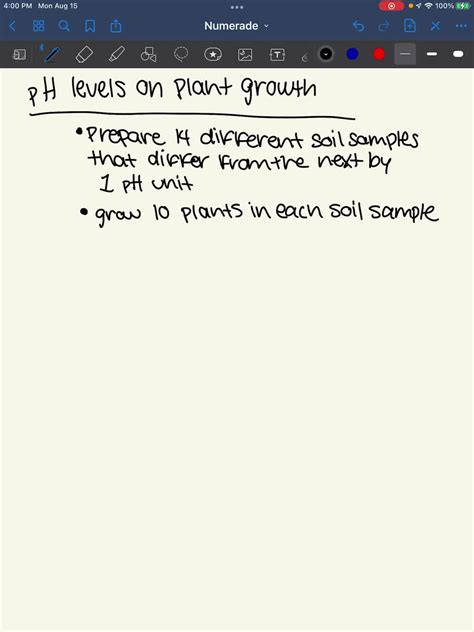 4:00 PM Mon Aug 15
100%
Numerade
T
pH levels on plant growth
• Prepare 14 different soil samples
that differ from the next by
1 pH unit
• grow 10 plants in each soil sample